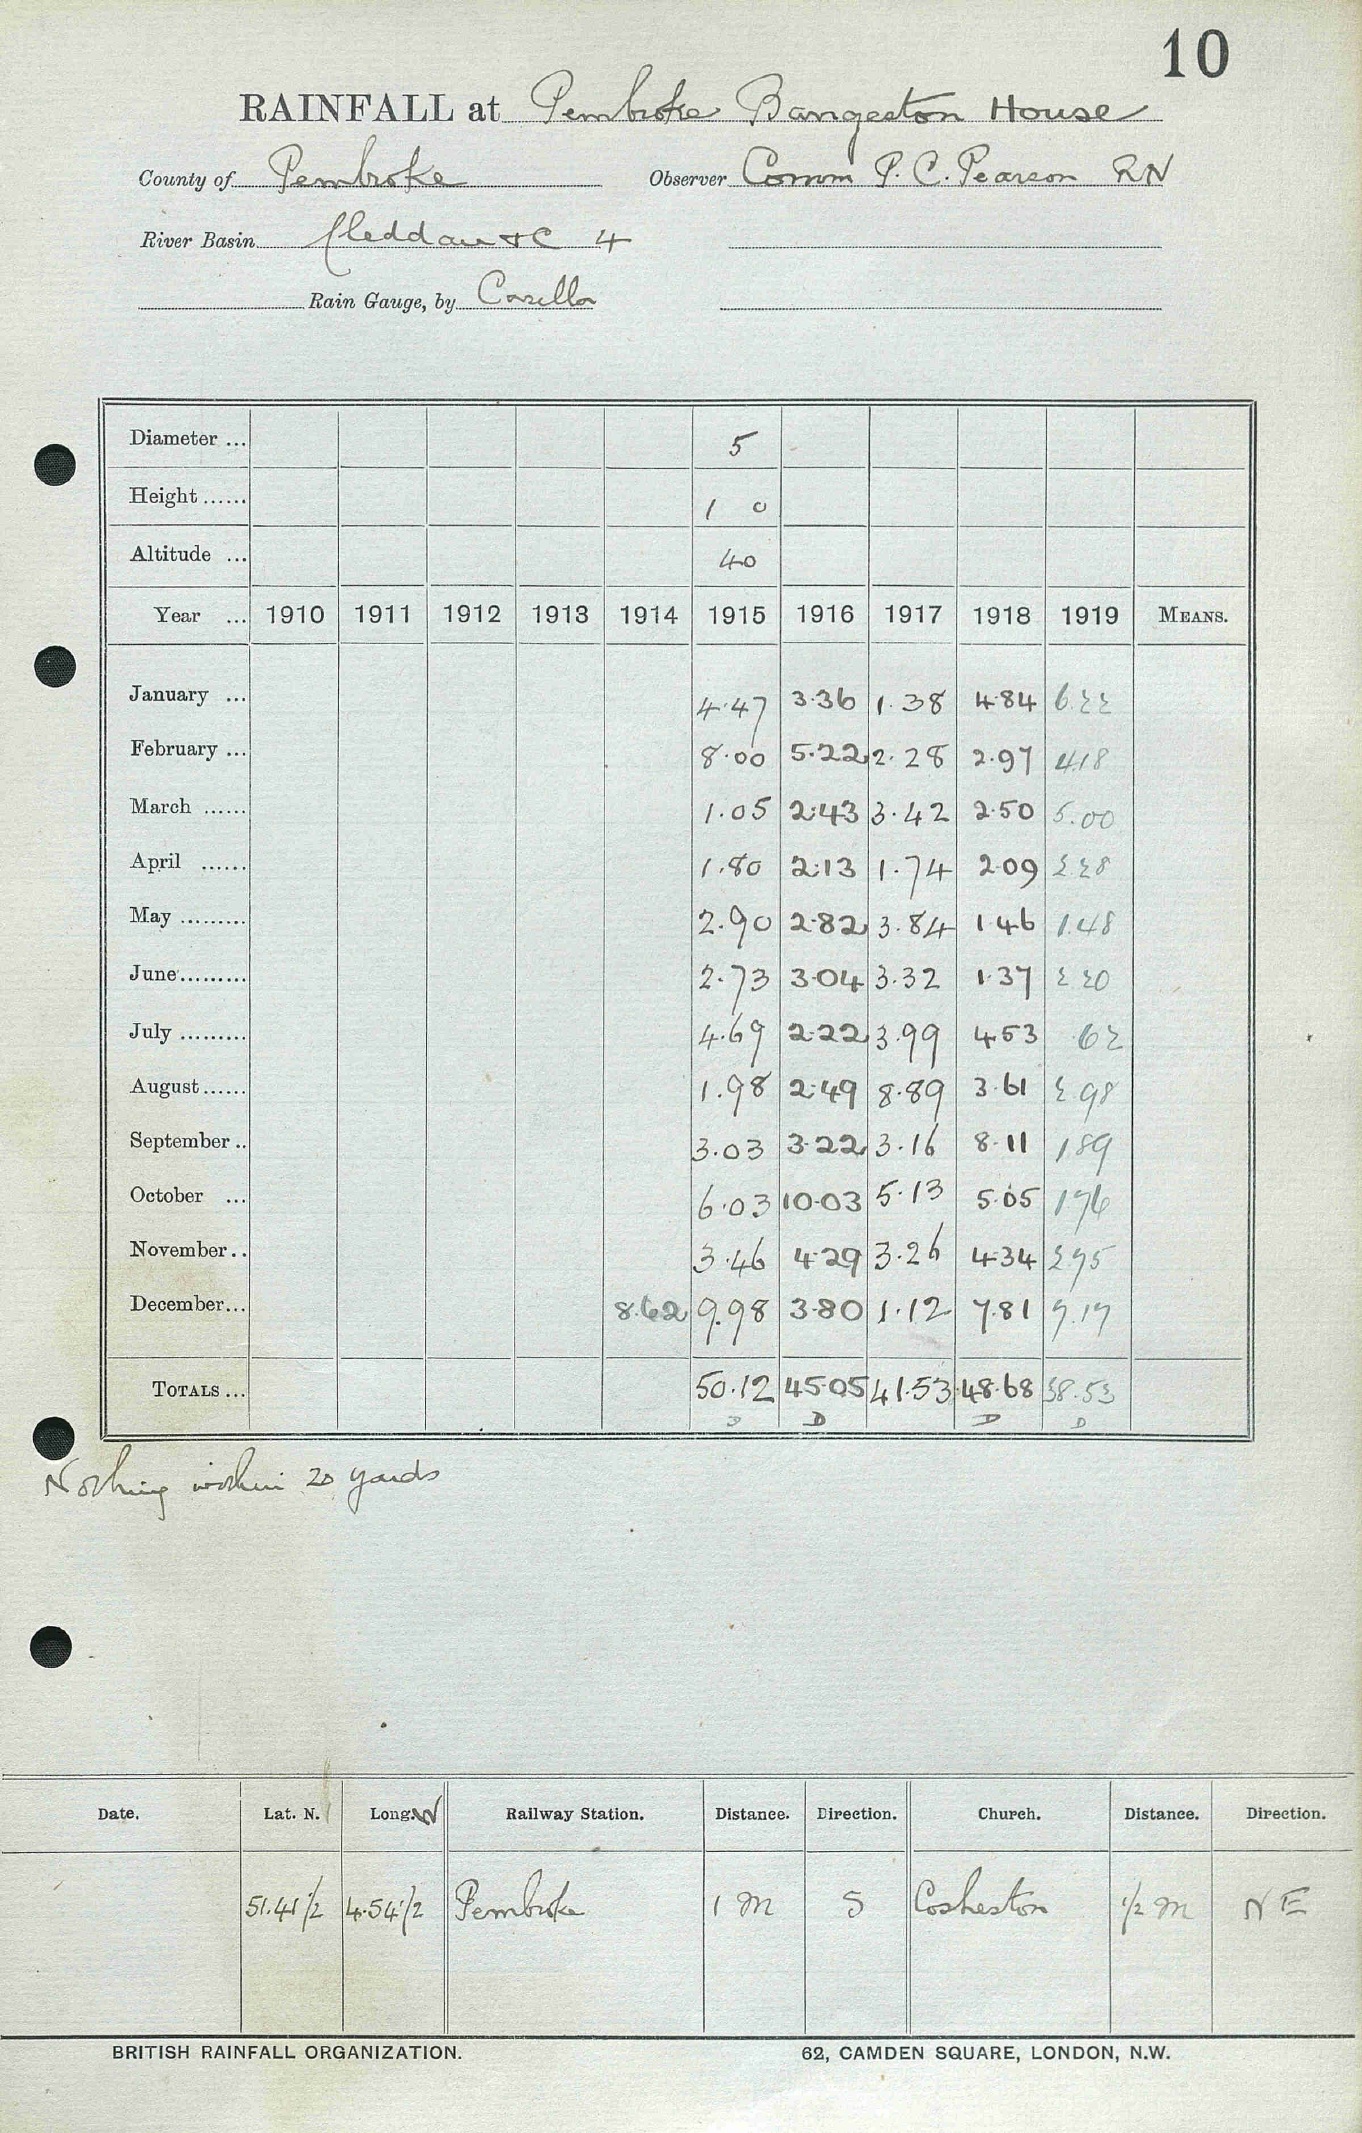 10
RAINFALL at Pembroke Bangeston House
County of Pembroke Observer Comm P. C. Pearson RN
River Basin Cleddau &C 4
Rain Gauge, by Casella
Diameter ... 5
Height ...... 1 0
Altitude ... 40
Year ... 1910 1911 1912 1913 1914 1915 1916 1917 1918 1919 MEANS.
January ... 4.47 3.36 1.38 4.84 6.22
February ... 8.00 5.22 2.28 2.97 4.18
March ...... 1.05 2.43 3.42 2.50 5.00
April ...... 1.80 2.13 1.74 2.09 2 28
May ......... 2.90 2.82 3.84 1.46 1.48
June ......... 2.73 3.04 3.32 1.37 2 20
July ......... 4.69 2.22 3.99 4.53 .62
August ...... 1.98 2.49 8.89 3.61 2.98
September .. 3.03 3.22 3.16 8.11 1 89
October ... 6.03 10.03 5.13 5.05 1 76
November .. 3.46 4.29 3.26 4.34 2.75
December ... 8.62 9.98 3.80 1.12 7.81 7.17
TOTALS ... 50.12 45.05 41.53 48.68 38.53
D D D D
Nothing within 20 yards
Date. Lat. N. Long. W Railway Station. Distance. Direction. Church. Distance. Direction.
51.41 1/2 4.54 1/2 Pembroke 1 M S Cosheston 1/2 M N E
BRITISH RAINFALL ORGANIZATION. 62, CAMDEN SQUARE, LONDON, N.W.